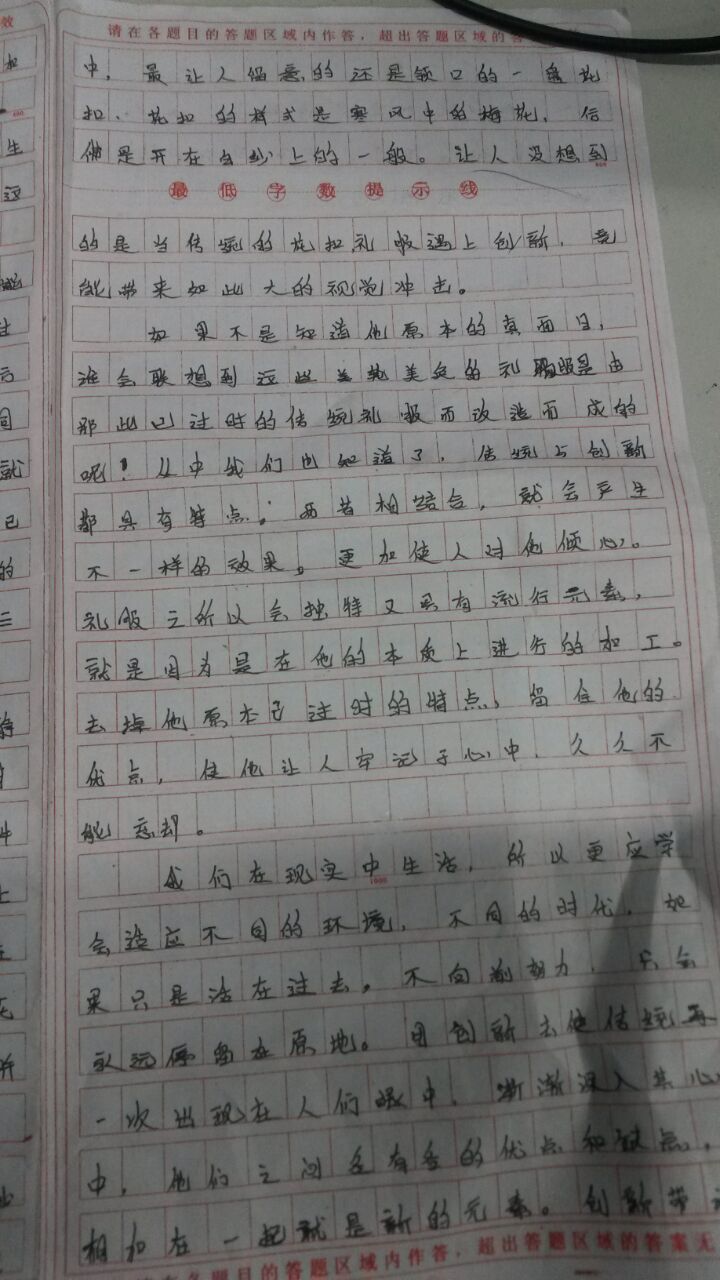 请在各题目的答题区域内作答，超出答题区域的答
中，最让人留意的还是领口的一盘花
扣、花扣的样式是寒风中的梅花，仿
佛是开在白纱上的一般。让人没想到
最低字数提示线
的是当传统的花扣礼服遇上创新，竟
能带来如此大的视觉冲击。
如果不是知道他原本的真面目，
谁会联想到这些美的礼服是由
那些已过时的传统礼服而改造而成的
呢！从中我们也知道了，传统与创新
都具有特点，两者相结合，就会产生
不一样的效果。更加使人对他倾心。
礼服之所以会独特又具有流行元素，
就是因为是在他的本质上进行的加工。
去掉他原本已过时的特点，留住他的
优点，使他让人牢记于心中，久久不
能忘却。
我们在现实中生活，所以更应学
1000
会适应不同的环境，不同的时代，如
果只是活在过去。不向前努力，只会
永远停留在原地。用创新去使传统再
一次出现在人们眼中，渐渐深入其心
中，他们之间各有各的优点和缺点，
相加在一起就是新的元素。创新带
请在各题目的答题区域内作答，超出答题区域的答案无